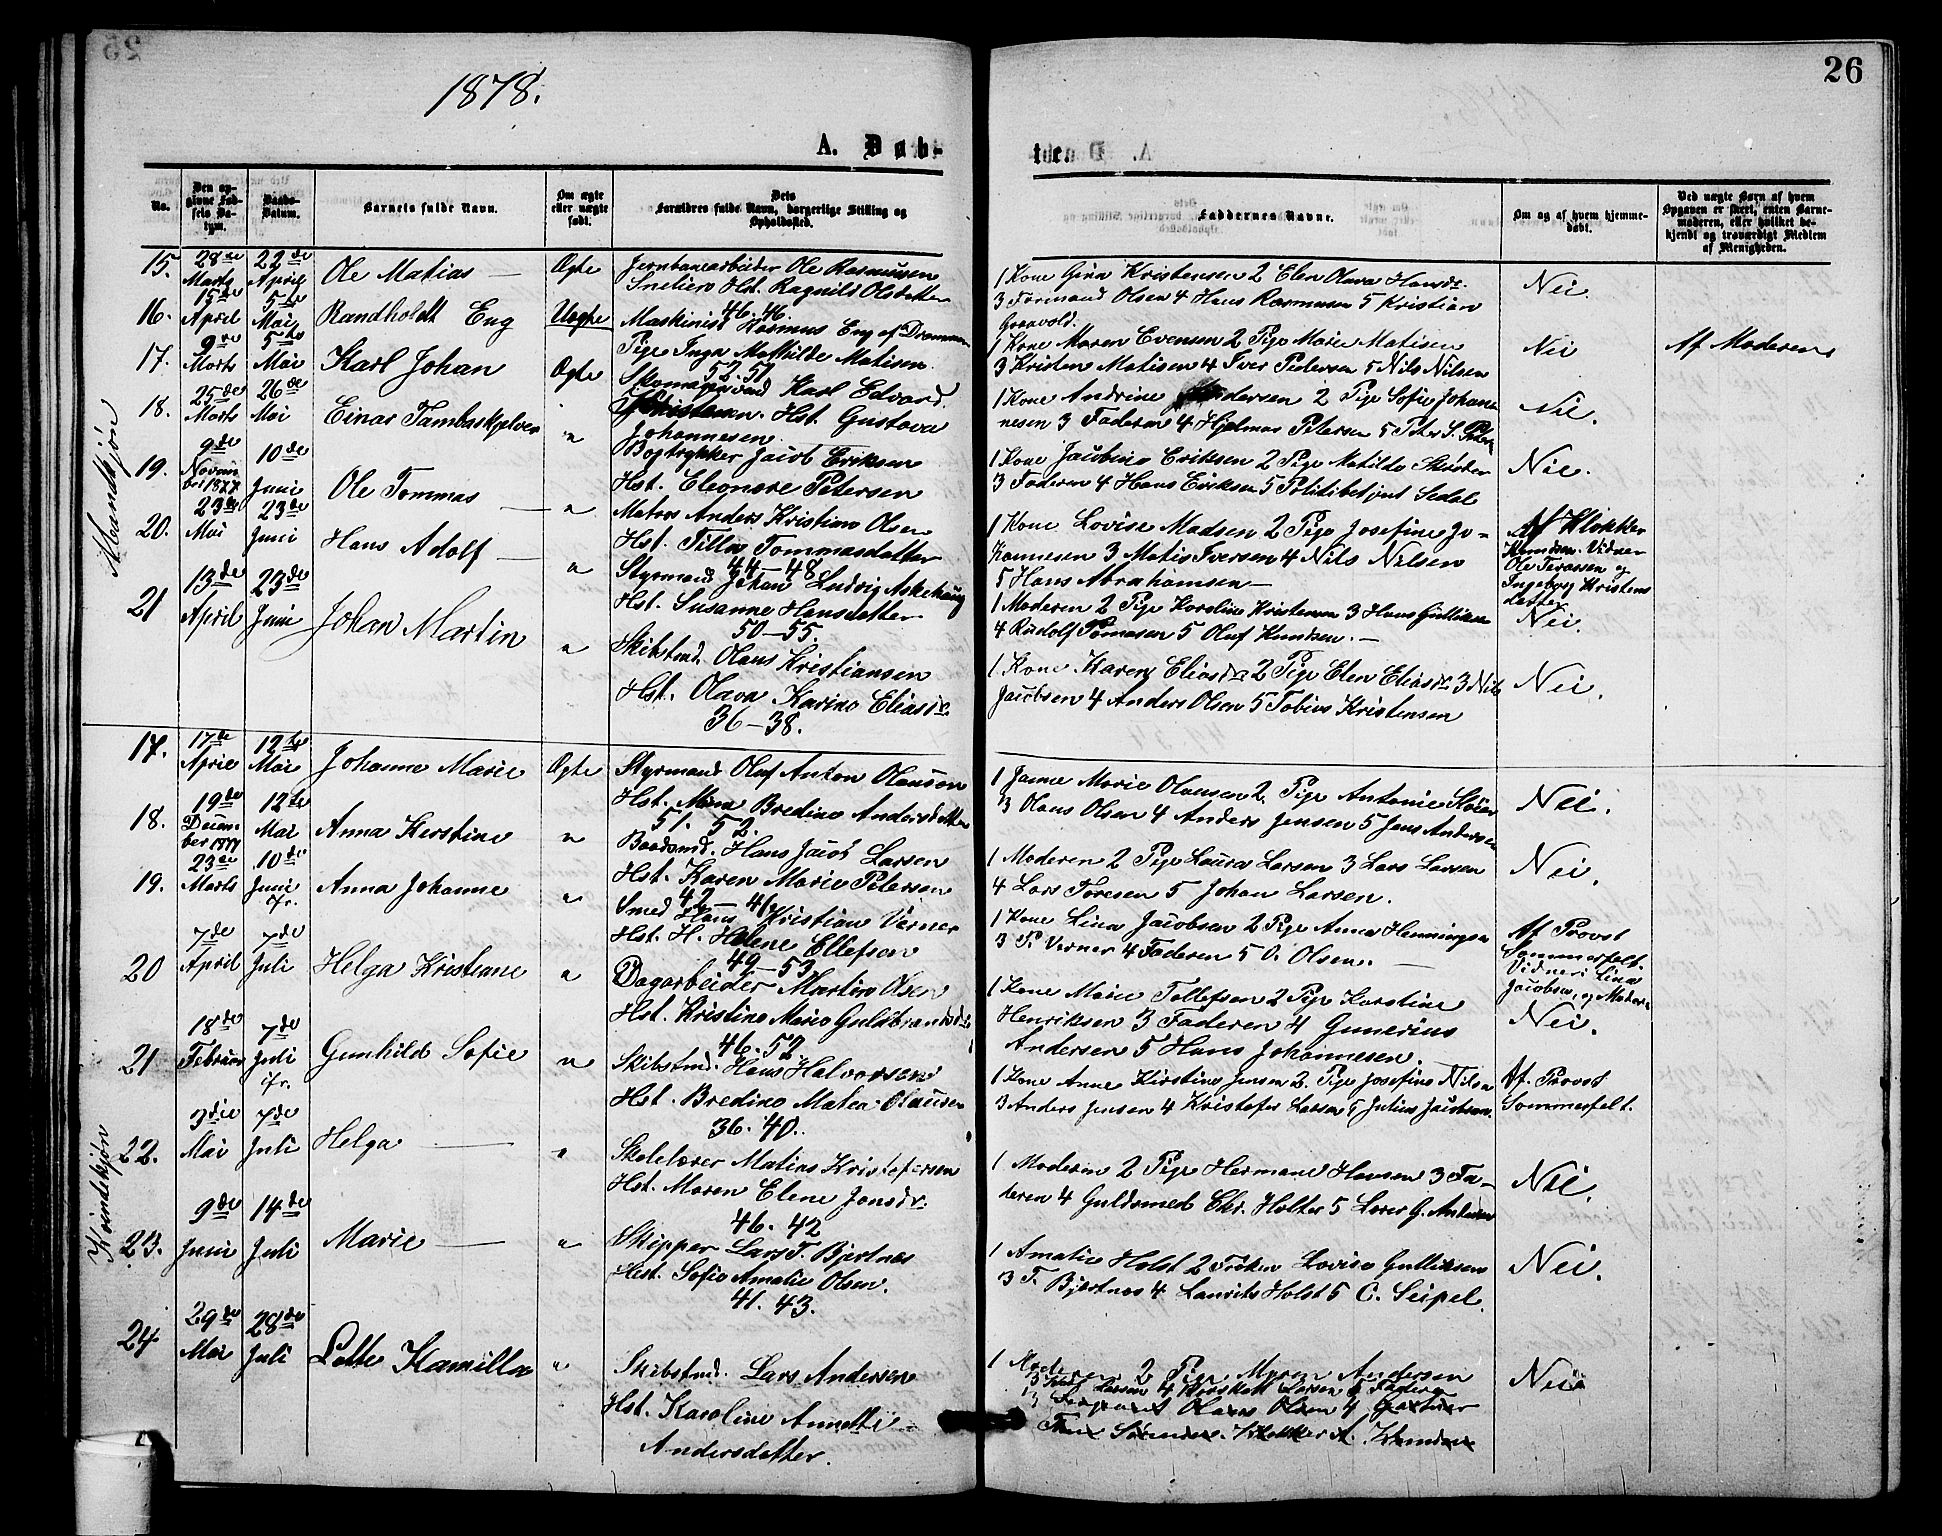 25
1878.
26
A. Døb-
te.
No.
Den opgivne Fødsels Datum.
Daabs-Datum.
Barnets fulde Navn.
Om ægte eller uægte født.
Dets Forældres fulde Navn, borgerlige Stilling og Opholdssted.
Faddernes Navne.
Om og af hvem hjemmedøbt.
Ved uægte Børn af hvem Opgaven er skeet, enten Barnemoderen, eller hvilket bekjendt og troværdigt Medlem af Menigheden.
Mandkjøn
15. 28de Marts 22de April Ole Matias — Ægte
Jernbanearbeider Ole Rasmussen
Hst. Ragnild Olsdatter
46. 46.
1 Kone Gina Kristensen 2 Elen Olava Hansdr.
3 Formand Olsen 4 Hans Rasmusen 5 Kristian
Graavold.
Nei.
16. 15de April 5te Mai Randholdt Eng Uægte
Maskinist Rasmus Eng af Drammen
Pige Inga Mathilde Matisen
52. 57
1 Kone Maren Evensen 2 Pige Marie Matisen
3 Kristen Matisen 4 Iver Pedersen 5 Nils Nilsen
Nei
Af Moderen
17. 9de Marts 5te Mai Karl Johan Ægte
Skomagersvend Karl Edvard
Kristensen. Hst. Gustava
Johannesen
1 Kone Andrine Andersen 2 Pige Sofie Johan-
nesen 3 Faderen 4 Hjelmar Petersen 5 Peter S.
Nei.
18. 25de Marts 26de Mai Einar Tambaskjelver "
Bogtrykker Jacob Eriksen
Hst. Eleonore Petersen
1 Kone Jacobine Eriksen 2 Pige Matilde
3 Faderen 4 Hans Eriksen 5 Politibetjent Sedal
Nei.
19. 9de November 1877 10de Juni Ole Tommas — "
Matros Anders Kristian Olsen
Hst. Tilla Tommasdatter
44 – 48
1 Kone Lovise Madsen 2 Pige Josefine Jo-
hannesen 3 Matis Iversen 4 Nils Nilsen
5 Hans Abrahamsen —
Af Klokker
Knudsen. Vidner
Ole Terasen og
Ingeborg Kristens
datter
20. 23de Mai 23de Juni Hans Adolf — "
Styrmand Johan Ludvig Askehaug
Hst. Susanne Hansdatter
50 – 55.
1 Moderen 2 Pige Karoline Kristensen 3 Hans Gulliksen
4 Rudolf Tomasen 5 Oluf Knudsen. —
Nei.
21 13de April 23de Juni Johan Martin "
Skibstmd. Olaus Kristiansen
Hst. Olava Karine Eliasdr.
36 – 38.
1 Kone Karen Eliasdr 2 Pige Elen Eliasdr 3 Nils
Jacobsen 4 Anders Olsen 5 Tobias Kristensen
Nei.
Kvindekjøn
17. 17de April 12te Mai Johanne Marie Ægte
Styrmand Oluf Anton Olausen
Hst. Mina Bredine Andersdatter
51. 52.
1 Janne Marie Olausen 2 Pige Antonie
3 Olaus Olsen 4 Anders Jensen 5 Jens Andersen
Nei.
18. 19de December 1877 12te Mai Anna Kerstine "
Baadsmd. Hans Jacob Larsen
Hst. Karen Marie Petersen
42 – 41
1 Moderen 2 Pige Laura Larsen 3 Lars Larsen
4 Lars Toresen 5 Johan Larsen.
Nei.
19. 23de Marts 10de Juni fr. Anna Johanne "
Smed Hans Kristian Verner
Hst. H. Helene Ellefsen
49 – 53
1 Kone Lina Jacobsen 2 Pige Anna Henningsen
3 P. Verner 4 Faderen 5 O. Olsen. —
Af Provst
Sommerfelt.
Vidner: Lina
Jacobsen og Moderen
20 7de April 7de Juli Helga Kristiane "
Dagarbeider Martin Olsen
Hst. Kristine Marie Guldbrandsdr
46. 52
1 Kone Marie Tollefsen 2 Pige Karstine
Henriksen 3 Faderen 4 Gunerius
Andersen 5 Hans Johannesen.
Nei.
21 18de Februar 7de Juli fr. Gunhild Sofie "
Skibstmd. Hans Halvorsen
Hst. Bredine Matea Olausen
36. 40.
1 Kone Anne Kirstine Jensen 2. Pige Josefine Nilsen
3 Anders Jensen 4 Kristofer Larsen 5 Julius Jacobsen.
Af. Provst
Sommerfelt.
22. 3die Mai 7de Juli Helga — "
Skolelærer Matias Kristofersen
Hst. Maren Elene Jansdr.
46. 42
1 Moderen 2 Pige Hermane Hansen 3 Fa-
deren 4 Guldsmed Chr. Holter 5 Lærer G. Andersen
Nei.
23. 9de Juni 14de Juli Marie — "
Skipper Lars T. Bjertnes
Hst. Sofie Amalie Olsen.
41. 43.
1 Amalie Holst 2 Frøken Lovise Gulliksen
3 T. Bjertnes 4 Laurits Holst 5 C. Seipel.
Nei.
24 29de Mai 28de Juli Lotte Kamilla "
Skibstmd. Lars Andersen
Hst. Karoline Annette
Andersdatter.
1 Moderen 2 Pige Maren Andersen
3 Larsen 4 Larsen 5 Faderen
3 Sergeant Olaus Olsen 4 Gartner
Klokker A. Knudsen
Nei.